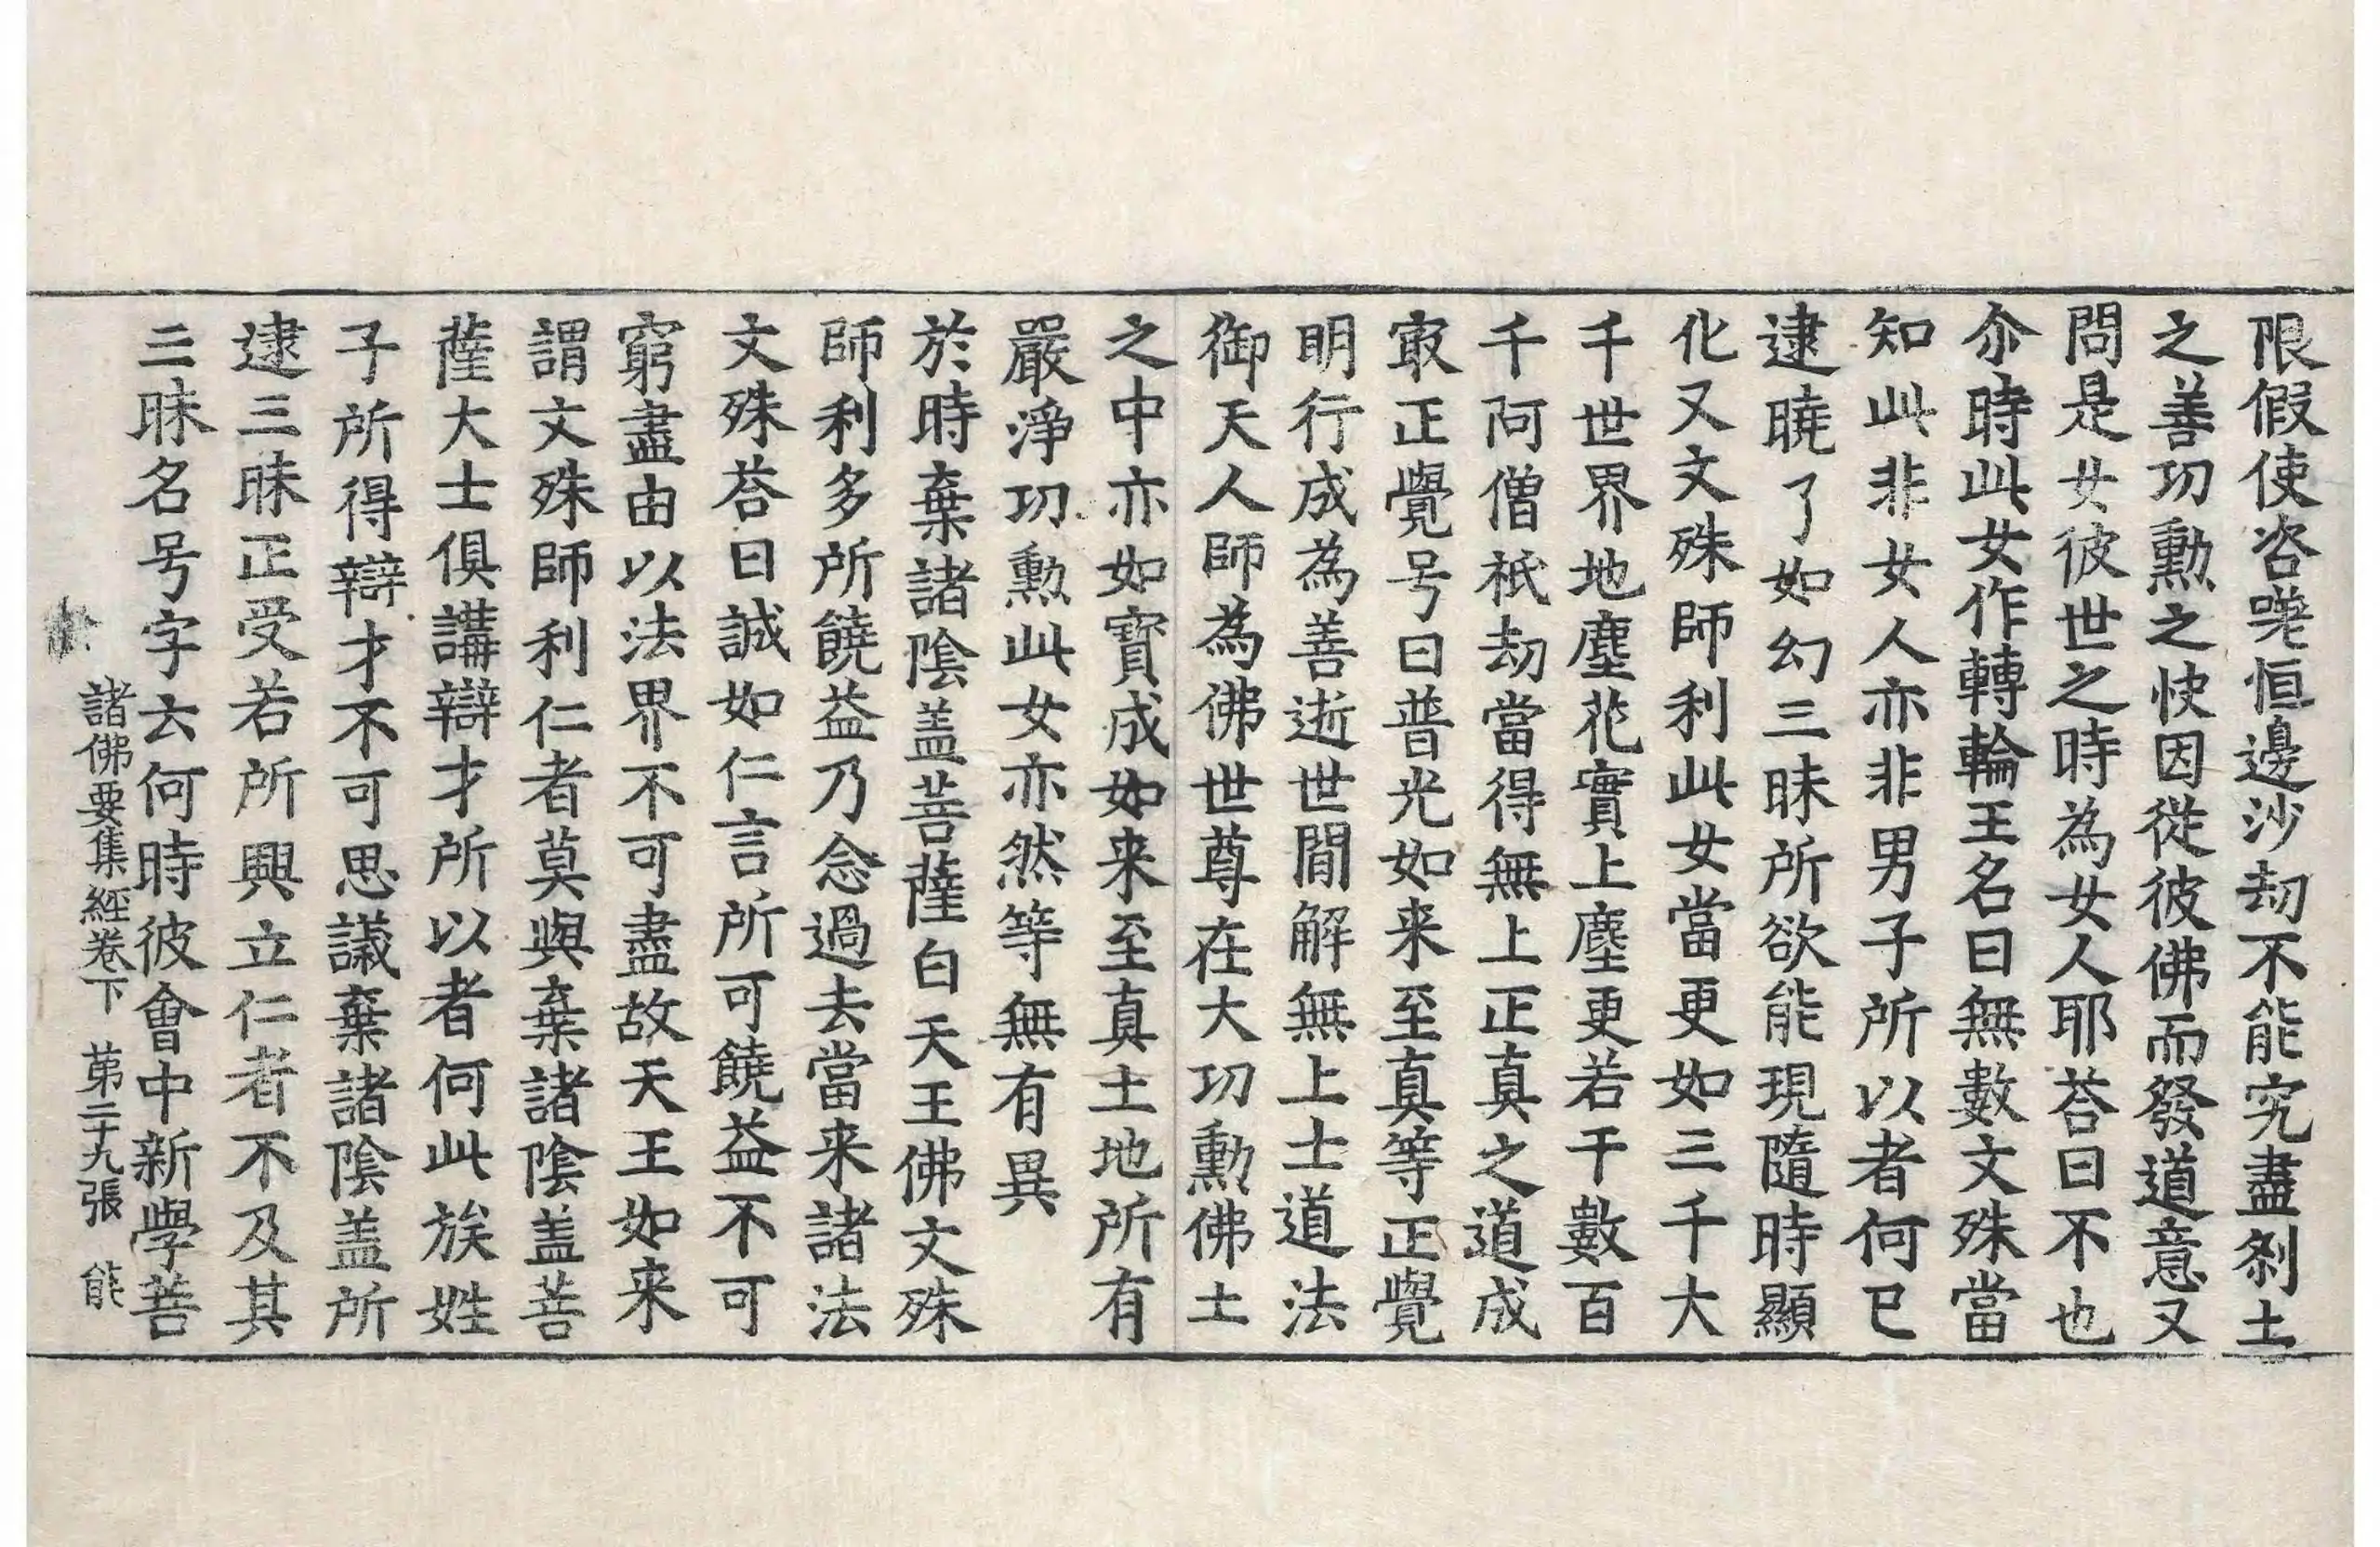 限假使咨嗟恒邊沙劫不能究盡刹土
之善功勲之快因從彼佛而發道意又
問是女彼世之時為女人耶荅曰不也
尒時此女作轉輪王名曰無數文殊當
知此非女人亦非男子所以者何已
逮曉了如幻三昧所欲能現隨時顯
化又文殊師利此女當更如三千大
千世界地塵花實上塵更若干數百
千阿僧祇劫當得無上正真之道成
㝡正覺号曰普光如来至真等正覺
明行成為善逝世閒解無上士道法
御天人師為佛世尊在大功勲佛土
之中亦如寳成如来至真土地所有
嚴淨功勲此女亦然等無有異
於時棄諸陰盖菩薩白天王佛文殊
師利多所饒益乃念過去當来諸法
文殊荅曰誠如仁言所可饒益不可
窮盡由以法界不可盡故天王如来
謂文殊師利仁者莫與棄諸陰盖菩
薩大士俱講辯才所以者何此族姓
子所得辯才不可思議棄諸陰盖所
逮三昧正受若所興立仁者不及其
三昧名号字云何時彼會中新學菩
諸佛要集經卷下 苐二十九張 能